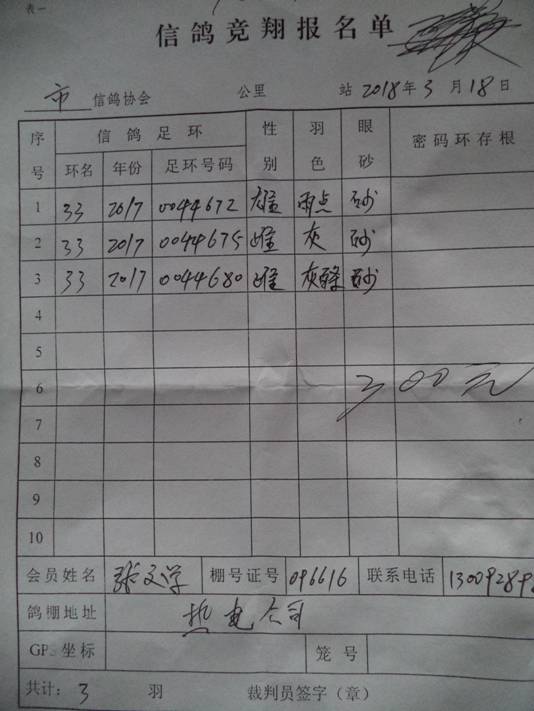 表一
信鸽竞翔报名单
市 信鸽协会 公里 站 2018年3月18日
序号 信鸽足环 性别 羽色 眼砂 密码环存根
环名 年份 足环号码
1 33 2017 0044672 雄 雨点 砂
2 33 2017 0044675 雌 灰 砂
3 33 2017 0044680 雌 灰 砂
4
5
6 300元
7
8
9
10
会员姓名 张文学 棚号证号 096616 联系电话
鸽棚地址 热电公司
GPS坐标 笼号
共计：3 羽 裁判员签字（章）